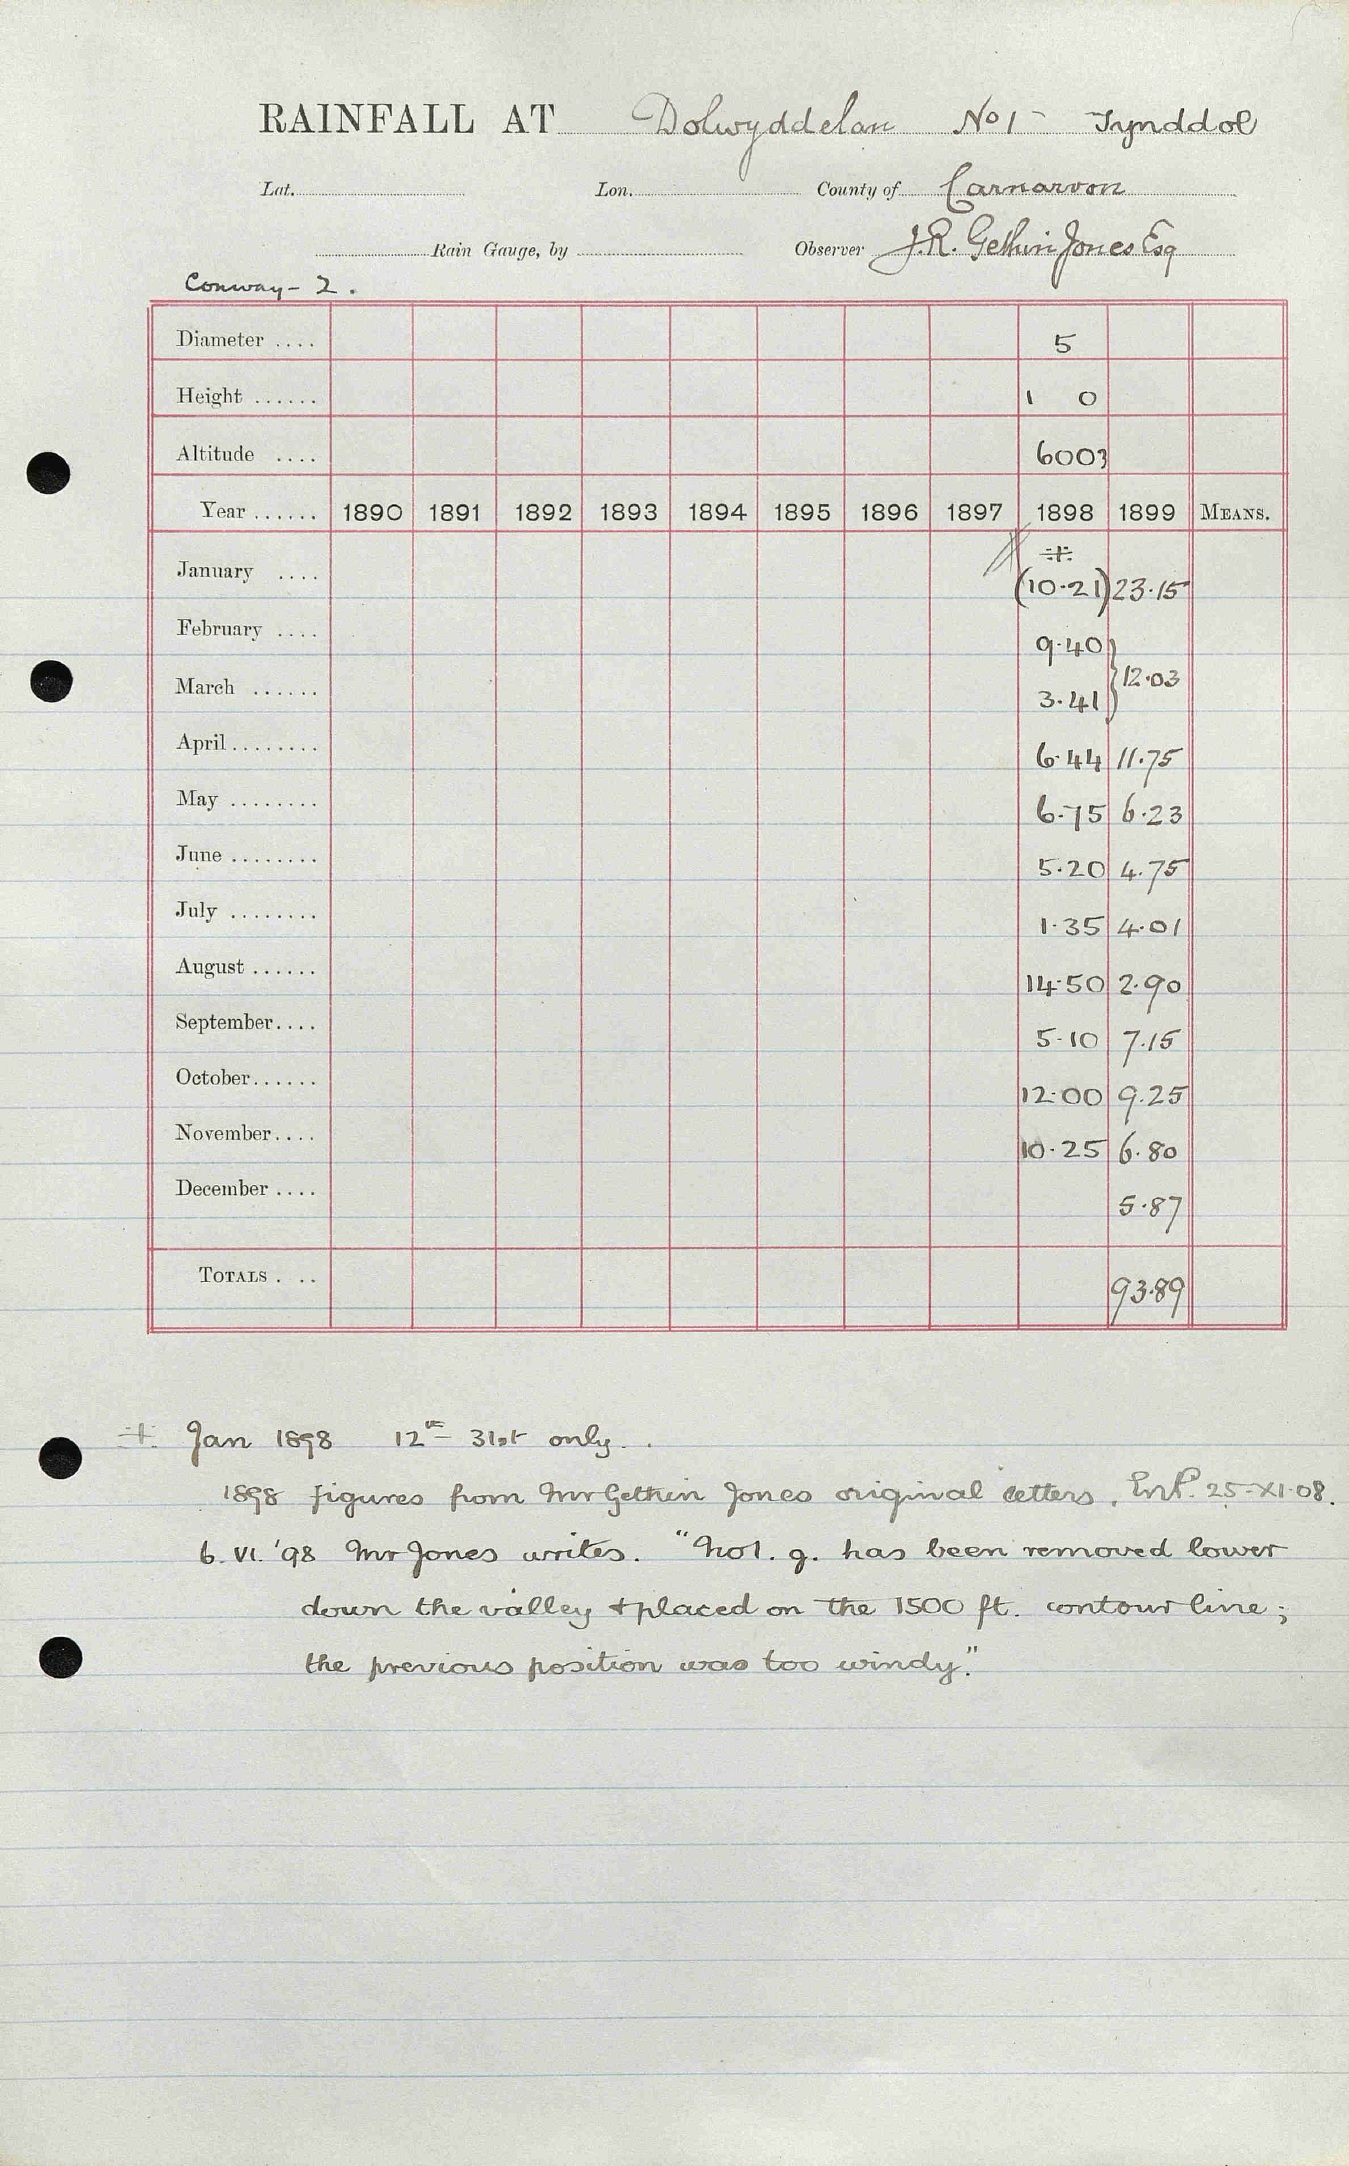 RAINFALL AT Dolwyddelan No 1 - Tynddol
Lat. Lon. County of Carnarvon
Rain Gauge, by Observer J.R. Gethin Jones Esq
Conway - 2.
Diameter .... 5
Height ...... 1 0
Altitude .... 600?
Year ...... 1890 1891 1892 1893 1894 1895 1896 1897 1898 1899 MEANS.
January .... ⁜ (10.21) 23.15
February .... 9.40
March ...... 3.41 } 12.03
April ........ 6.44 11.75
May ........ 6.75 6.23
June ........ 5.20 4.75
July ........ 1.35 4.01
August ...... 14.50 2.90
September .... 5.10 7.15
October ...... 12.00 9.25
November .... 10.25 6.80
December .... 5.87
TOTALS . .. 93.89
⁜ Jan 1898 12th - 31st only.
1898 figures from Mr Gethin Jones original letters. 25-XI-08.
6. VI. '98 Mr Jones writes. "No 1. g. has been removed lower
down the valley + placed on the 1500 ft. contour line;
the previous position was too windy."